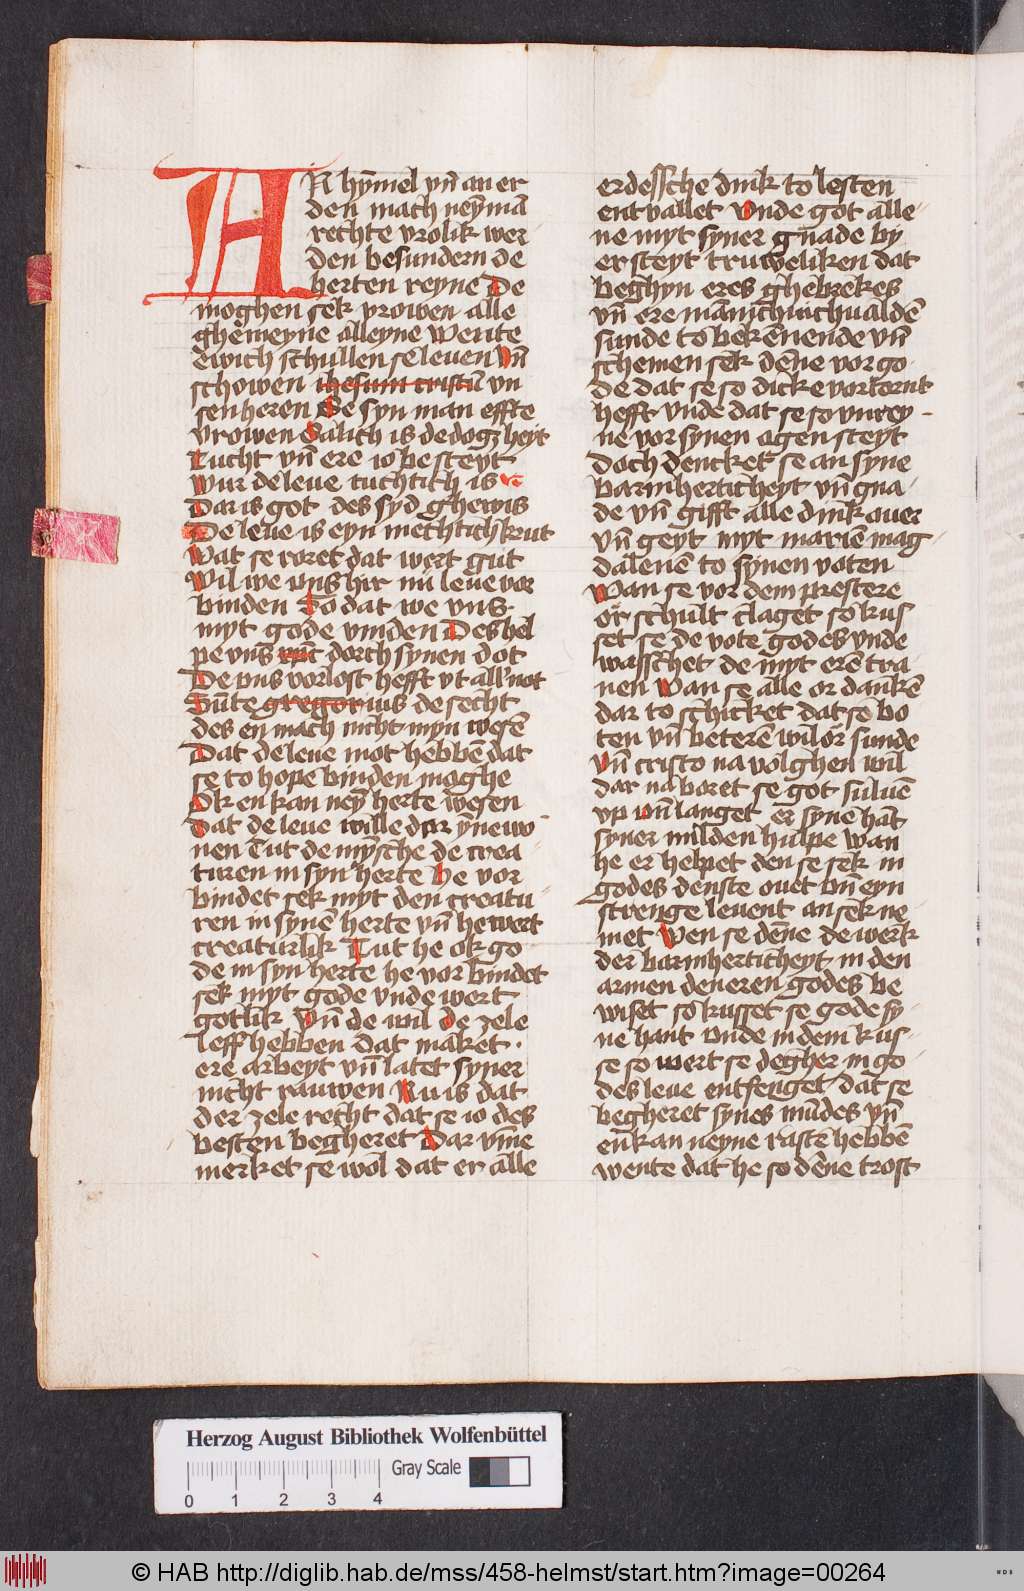 AN hȳmel vn̄ an er
den mach neymā
rechte vrolik wer
den besundern de
herten reyne De
moghen sek vrowen alle
ghemeyne alleyne Wente
ewich schullen se leuen Vn̄
schowen ihesum cristū vn
sen heren De syn man effte
vrowen Salich is de dogzheyt
Tucht vn̄ ere io be steyt
Wur de leue tuchtich is
Dar is got des syd ghewis
De leue is eyn mechtich krut
Wat se roret dat wert gut
Wil we uns hir mit leue vor
binden So dat we vns
myt gode vinden Des hel
pe vns dorch synen dot
De vns vorlost hefft vt all' not
Sūte gregorius de secht
des en mach nicht myn wesē
Dat de leue mot hebbē dat
se to hope binden moghe
Ok en kan ney herte wesen
Dat de leue wille dar ȳne wo
nen Tut de mȳsche de crea
turen in syn herte He vor
bindet sek myt den creatu
ren in synē herte vn̄ he wert
creaturlik Tut he ok go
de in syn herte he vor bindet
sek myt gode vnde wert
gotlik Vn̄ de wil de zele
leff hebben dat maket
ere arbeyt vn̄ latet syner
nicht rauwen Nu is dat
der zele recht dat se io des
besten begheret Dar vm̄e
merket se wol dat er alle
erdessche dink to lesten
entvallet Vnde got alle
ne myt syner gnade by
er steyt truweliken dat
beghyn eres ghebrekes
vn̄ ere mānichuichualdē
sunde to bekēnende vn̄
schemen sek dēne vor go
de dat se so dicke vortornt
hefft vnde dat se so vnrey
ne vor synen ogen steyt
doch dencket se an syne
barmherticheyt vn̄ gna
de vn̄ gifft alle dink auer
vn̄ geyt myt mariē mag
dalenē to synen voten
Wan se vor dem prestere
or schult claget so kus
set se de vote godes vnde
wasschet de myt erē tra
nen Wan se alle or dankē
dar to schicket dat se bo
ten vn̄ beterē wil or sunde
Vn̄ cristo na volghen wil
dar na boret se got suluē
vp vn̄ langet er syne hāt
syner milden hulpe wan
he er helpet den se sek in
godes denste ouet vn̄ eyn
strenge leuent an sek ne
met Wen se dēne de werk
der barmherticheyt in den
armen deneren godes be
wiset so kusset se gode sy
ne hant vnde in dem kus
se so wert se degher in go
des leue entfenget dat se
begheret synes mūdes vn̄
en kan neyne raste hebbē
wente dat he so dēne trost
Herzog August Bibliothek Wolfenbüttel
Gray Scale
0 1 2 3 4
© HAB http://diglib.hab.de/mss/458-helmst/start.htm?image=00264